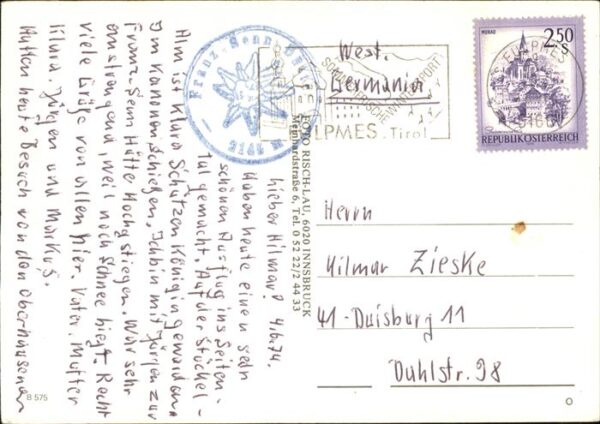 Lieber Hilmar! 4.6.74.
Haben heute einen sehr
schönen Ausflug ins Seiten-
tal gemacht. Auf der Stöckel-
Alm ist Klara Schützenkönigin geworden
Im Kanonenschießen, Ich bin mit Jürgen zur
Franz-Senn Hütte Hochgestiegen. War sehr
anstrengend, weil noch Schnee liegt. Recht
viele Grüße von allen hier. Vater. Mutter
Klara. Jürgen und Markus.
Hatten heute Besuch von den Oberhausenern
B 575
FOTO RISCH-LAU, 6020 INNSBRUCK
Meinhardstraße 6, Tel. 0 52 22/2 44 33
Franz-Senn-Hütte
2149 m
SOMMERFRISCHE
WINTERSPORT
FULPMES. Tirol
FULPMES
6166
MURAU
2.50
S
REPUBLIK ÖSTERREICH
West.
Germanien
Herrn
Hilmar Zieske
41-Duisburg 11
Dahlstr. 98
O